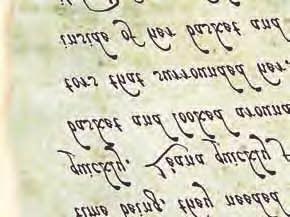 time being, they needed
quickly. Leana quickly
basket and looked around
tors that surrounded her.
inside of her basket and